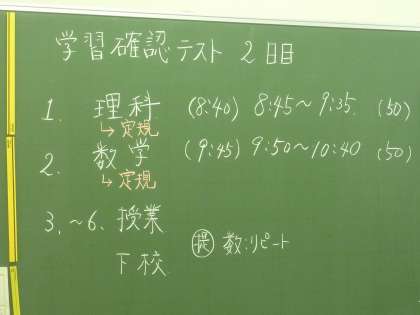 学習確認テスト 2日目
1. 理科 (8:40) 8:45~9:35 (50)
↳定規
2. 数学 (9:45) 9:50~10:40 (50)
↳定規
3.~6. 授業
提 数:リピート
下校